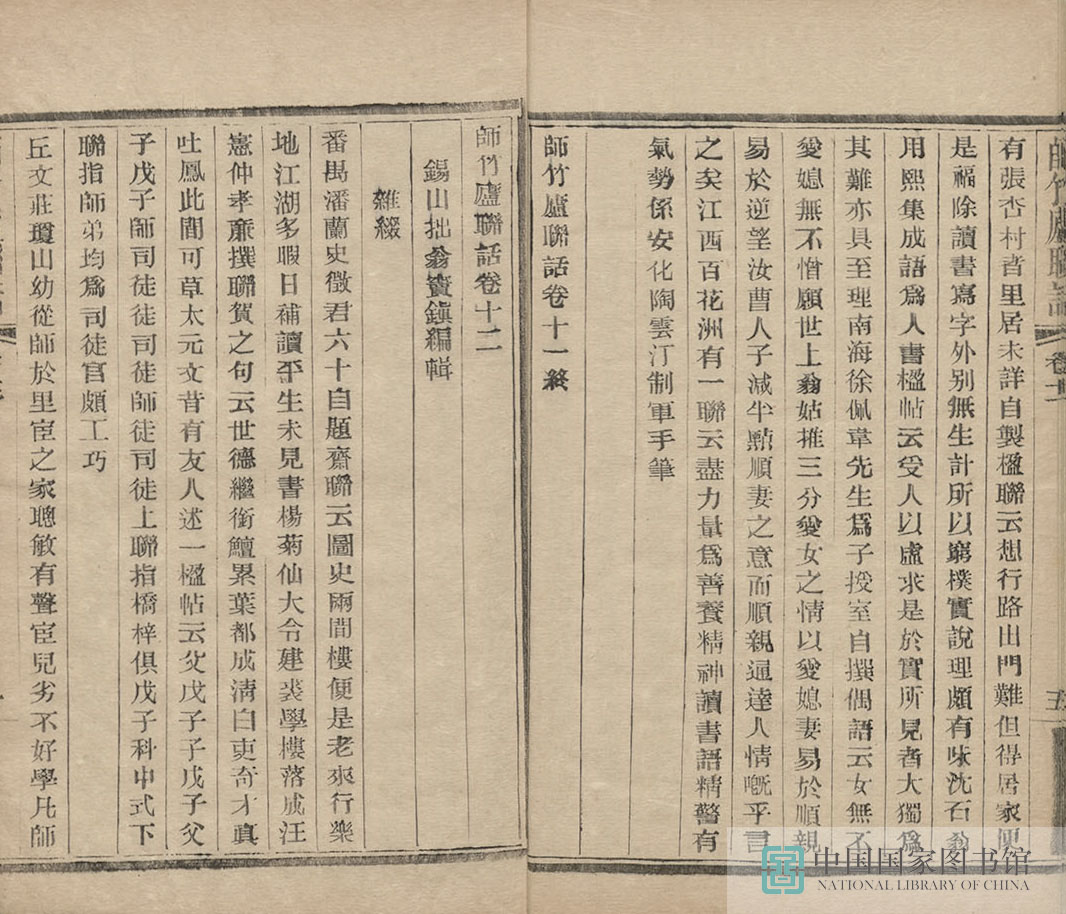 師竹廬聯話 卷十一 五
有張杏村者里居未詳自製楹聯云想行路出門難但得居家便
是福除讀書寫字外别無生計所以窮樸實說理頗有味沈石翁
用熙集成語爲人書楹帖云受人以虛求是於實所見者大獨爲
其難亦具至理南海徐佩韋先生爲子授室自撰偶語云女無不
愛媳無不憎願世上翁姑推三分愛女之情以愛媳妻易於順親
易於逆望汝曹人子減半點順妻之意而順親通達人情嘅乎言
之矣江西百花洲有一聯云盡力量爲善養精神讀書語精警有
氣勢係安化陶雲汀制軍手筆
師竹廬聯話卷十一終
師竹廬聯話卷十二
錫山拙翁竇鎭編輯
雜綴
番禺潘蘭史徵君六十自題齋聯云圖史兩閒樓便是老來行樂
地江湖多暇日補讀平生未見書楊菊仙大令建裘學樓落成汪
憲仲孝亷撰聯賀之句云世德繼銜鱣累葉都成淸白吏奇才眞
吐鳳此間可草太元文昔有友人述一楹帖云父戊子子戊子父
子戊子師司徒徒司徒師徒司徒上聯指橋梓俱戊子科中式下
聯指師弟均爲司徒官頗工巧
丘文莊瓊山幼從師於里宦之家聰敏有聲宦兒劣不好學凡師
中国国家图书馆
NATIONAL LIBRARY OF CHINA